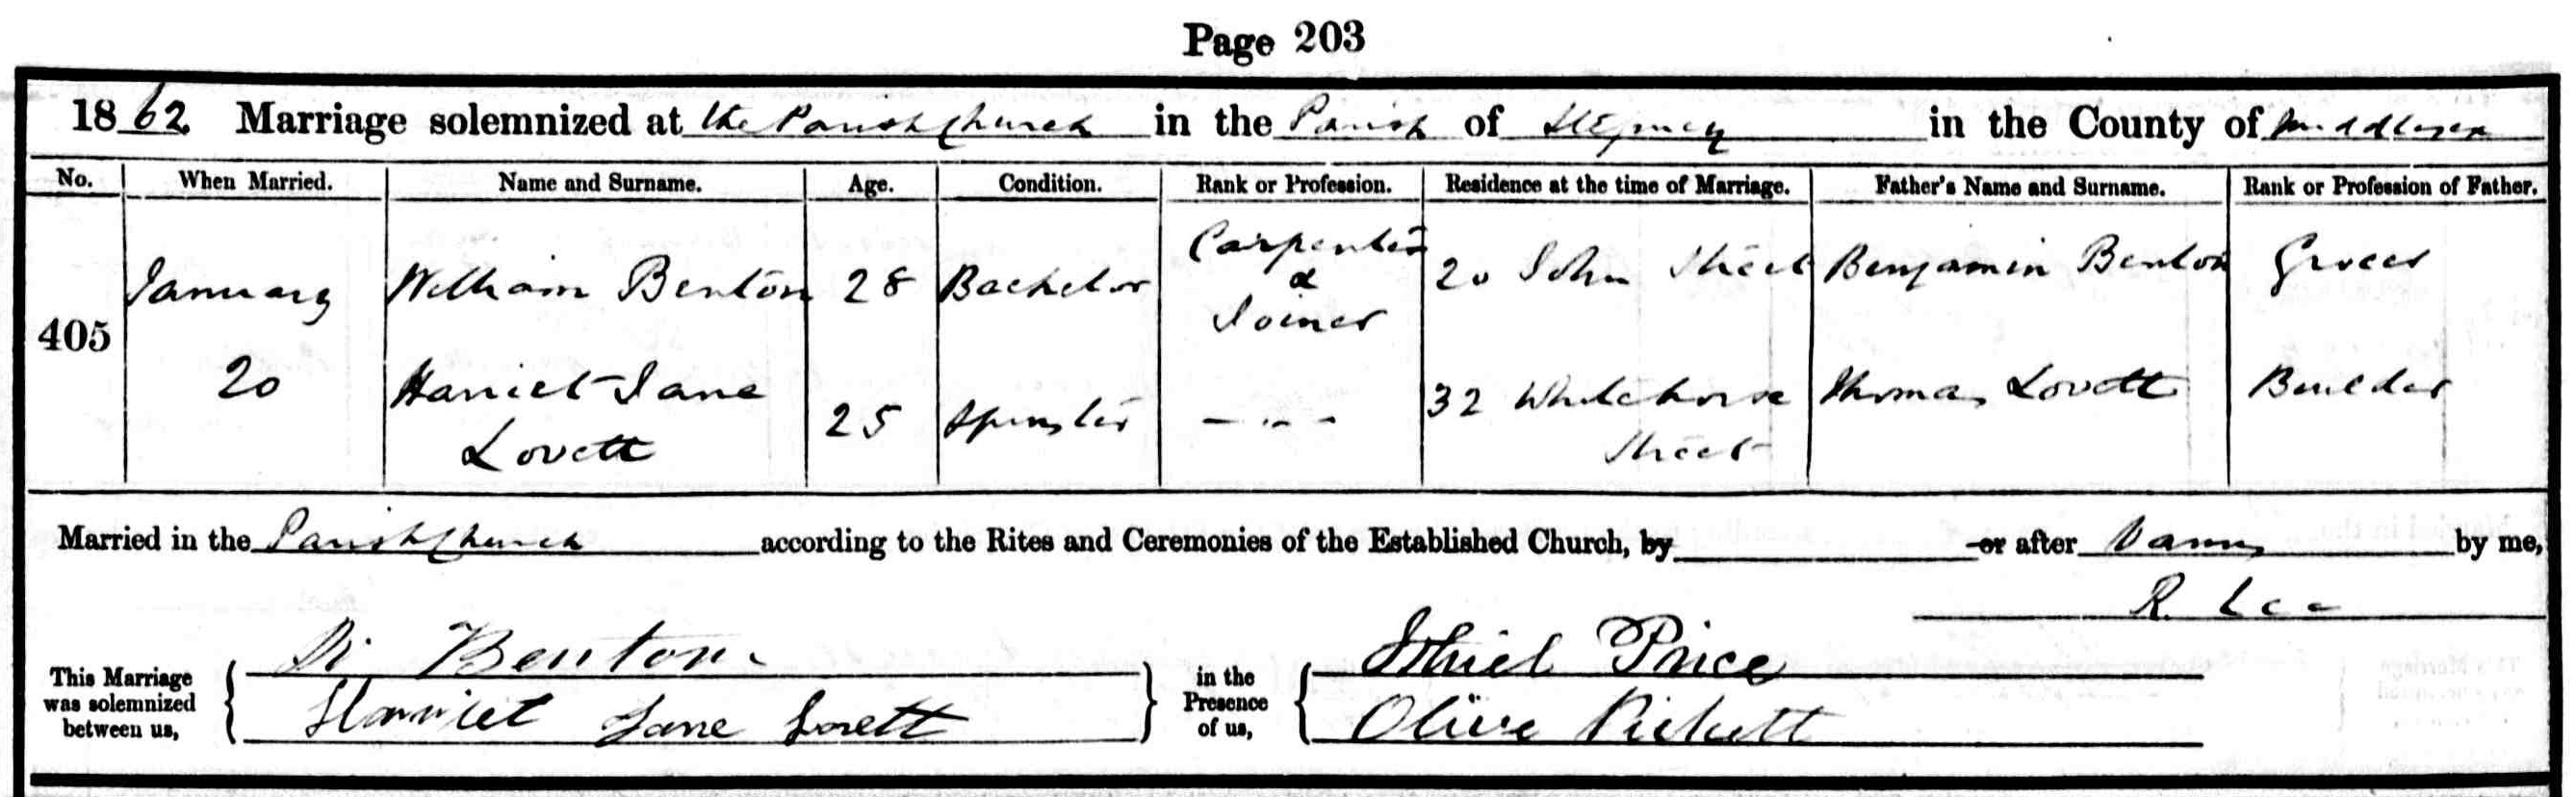 Page 203
1862 Marriage solemnized at the Parish Church in the Parish of Stepney in the County of Middlesex
No. When Married. Name and Surname. Age. Condition. Rank or Profession. Residence at the time of Marriage. Father's Name and Surname. Rank or Profession of Father.
405 January 20
William Benton 28 Bachelor Carpenter & Joiner 20 John Street Benjamin Benton Grocer
Harriet Jane Lovett 25 Spinster - " - 32 Whitehorse Street Thomas Lovett Builder
Married in the Parish Church according to the Rites and Ceremonies of the Established Church, by or after Banns by me,
R. Lee
This Marriage was solemnized between us,
Benton
Harriet Jane Lovett
in the Presence of us,
Ithiel Price
Olive Pickett